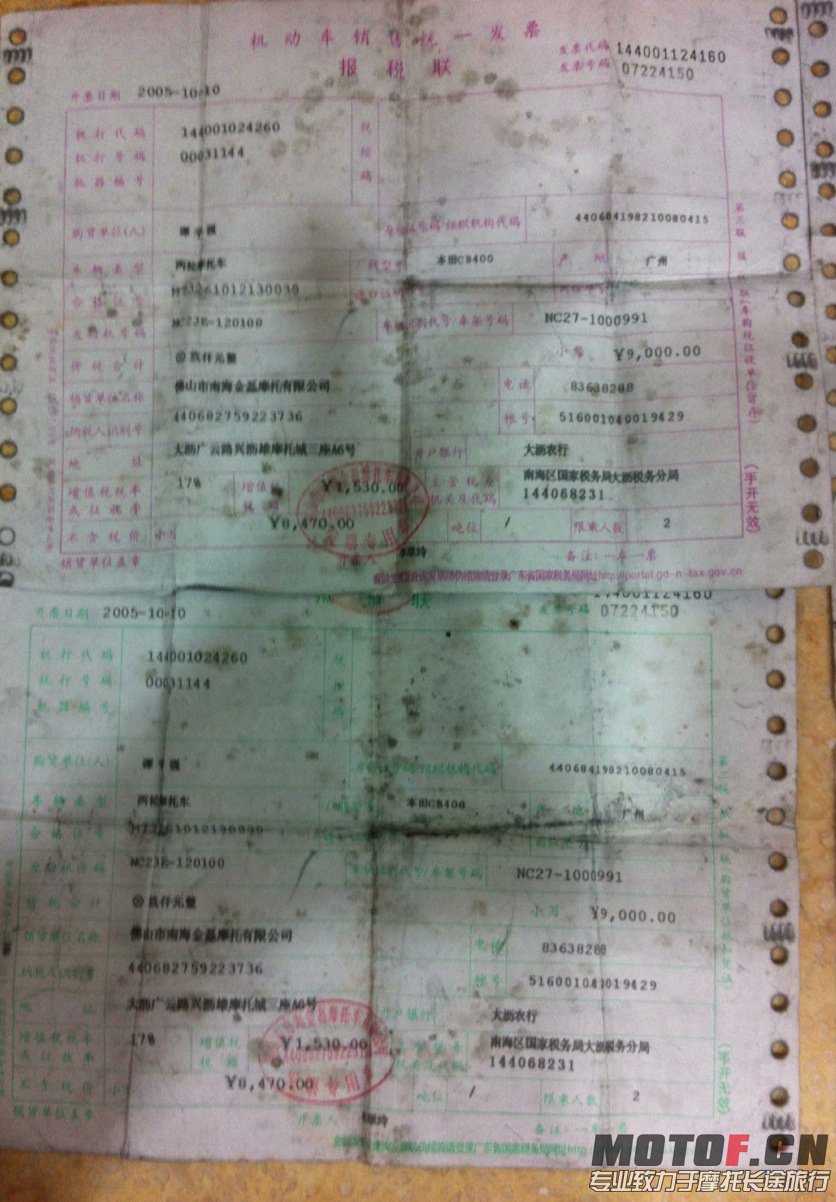 机动车销售统一发票
报税联
发票代码 144001124160
发票号码 07224150
开票日期 2005-10-10
机打代码 144001024260
机打号码 00031144
机器编号
购货单位(人)
身份证号码/组织机构代码 440684198210080415
车辆类型 两轮摩托车 厂牌型号 本田CB400 产地 广州
合格证号
发动机号码 MC23E-120100 车架号码 NC27-1000991
价税合计 ⊗玖仟元整 小写 ¥9,000.00
销货单位名称 佛山市南海金磊摩托有限公司 电话 83638288
纳税人识别号 440682759223736 帐号 516001040019429
地址 大沥广云路兴沥雄摩托城三座A6号 开户银行 大沥农行
增值税税率或征收率 17% 增值税税额 ¥1,530.00 主管税务机关及代码 南海区国家税务局大沥税务分局 144068231
不含税价 小写 ¥8,470.00 吨位 / 限乘人数 2
销货单位盖章 开票人 备注:一车一票
(手开无效)
开票日期 2005-10-10
144001124160
发票号码 07224150
机打代码 144001024260
机打号码 00031144
机器编号
购货单位(人)
440684198210080415
车辆类型 两轮摩托车 本田CB400 广州
合格证号
发动机号码 MC23E-120100 车架号码 NC27-1000991
价税合计 ⊗玖仟元整 小写 ¥9,000.00
销货单位名称 佛山市南海金磊摩托有限公司 电话 83638288
纳税人识别号 440682759223736 帐号 516001040019429
地址 大沥广云路兴沥雄摩托城三座A6号 开户银行 大沥农行
增值税税率或征收率 17% 增值税税额 ¥1,530.00 机关及代码 南海区国家税务局大沥税务分局 144068231
不含税价 ¥8,470.00 吨位 / 限乘人数 2
销货单位盖章 开票人 备注:一车一票
(手开无效)
MOTOF.CN
专业致力于摩托长途旅行